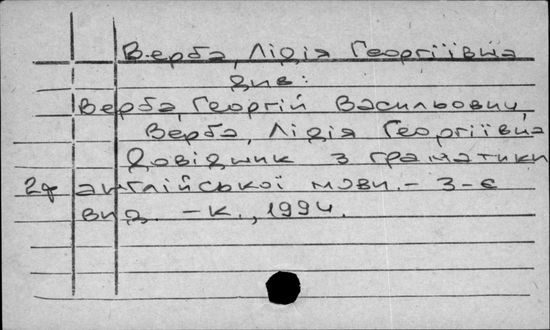 Верба, Лідія Георгіївна
див:
Верба, Георгій Васильович,
Верба, Лідія Георгіївна
Довідник з граматики
англійської мови. - 3-є
вид. - К., 1994.